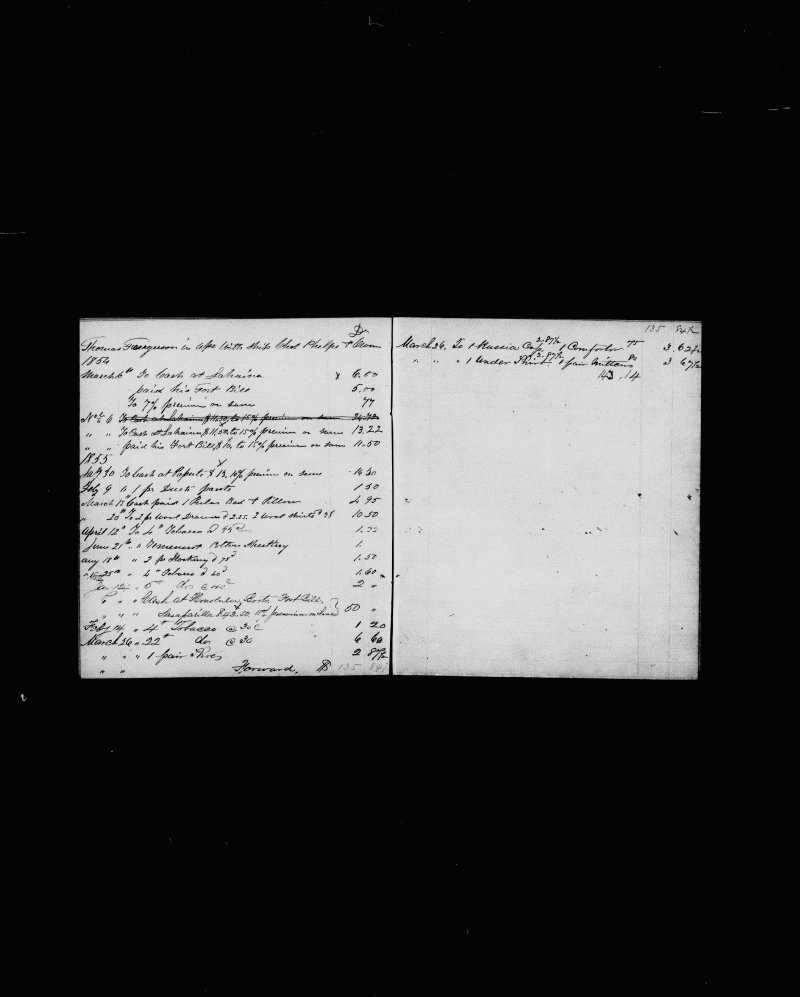 Dr
Thomas Ferguson in a/c with Ship Chas Phelps & Owners
1854
March 6th To Cash at Lahaina x 6.00
paid his Fort Bill 5.00
To 7% premium on same 77
Nov 6 To Cash at Lahaina $11.50, to 15% premium on same
" " To Cash at Lahaina $11.50, to 15% premium on same 13.22
" " paid his Fort Bill, $10, to 15% premium on same 11.50
1855
To Cash at $13, 10% premium on same 14 30
Feb 9 " 1 pr Duck pants 1 50
March 15 Cash paid 1 Bed & Pillow 4 95
" 20th To 2 pr Wool Drawers 2 Wool shirts 10 50
April 12th To 4 lb Tobacco
June 21st " Cotton 1.
Aug 18th " 2 pr Stockings @ 75 1.50
" 25th " 4 lb Tobacco @ 40 1.60
" do @ 40 2 "
" " " Cash at Honolulu, Fort Bill,
" " " Sarsaparilla $43.50, 15% premium on 50 "
Feby 14 " 4 lb Tobacco @ 30 c 1 20
March 26 " 22 lb do @ 30 6 60
" " " 1 pair Shoes 2 87½
" " Forward, $ 135 84½
135 84½
March 26, To 1 Russia Cap 2,87½ 1 Comforter 75 3.62½
" " " 1 Under Shirt 2.87½ 1 pair Mittens 80 3 67½
143.14